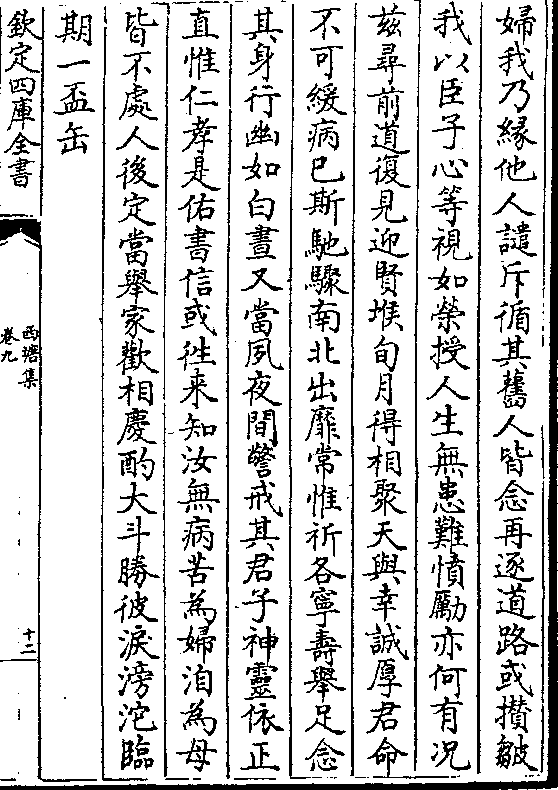 婦我乃縁他人譴斥循其舊人皆念再逐道路或攅皺
我以臣子心等視如榮授人生無患難憤勵亦何有况
茲尋前道復見迎賢堠旬月得相聚天與幸誠厚君命
不可緩病已斯馳驟南北出靡常惟祈各寧壽舉足念
其身行幽如白晝又當夙夜間警戒其君子神靈依正
直惟仁孝是佑書信或徃来知汝無病苦為婦洎為母
皆不處人後定當舉家歡相慶酌大斗勝彼淚滂沱臨
期一盃缶
欽定四庫全書
西塘集
卷九
十二